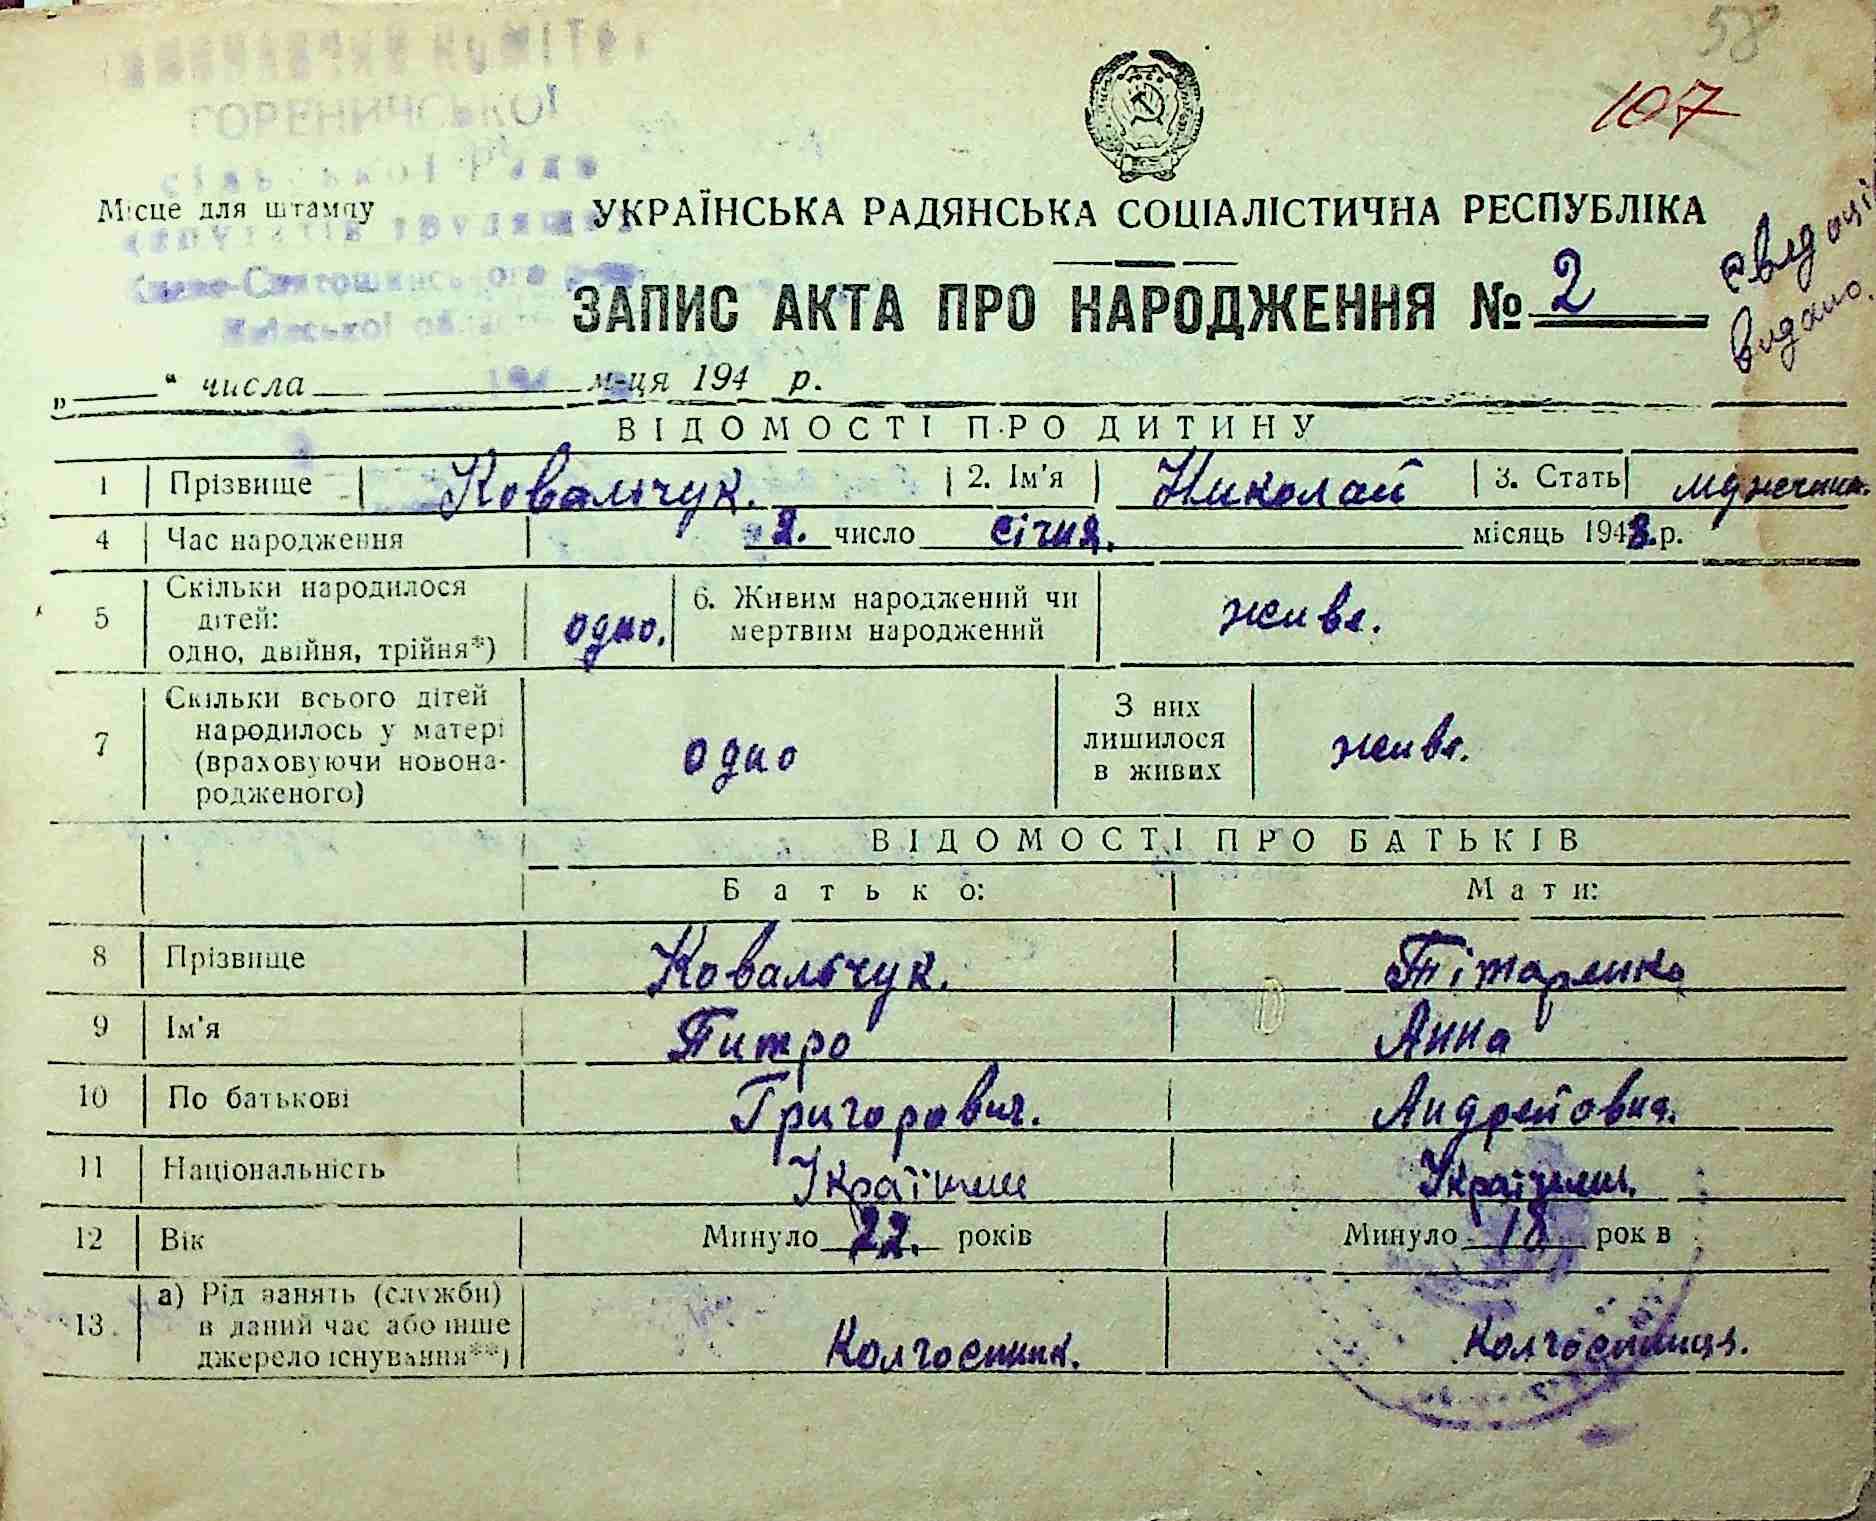 58
107
ВИКОНАВЧИЙ КОМІТЕТ
ГОРЕНИЧСЬКОЇ
сільської Ради
Місце для штампу
депутатів трудящих
Києво-Святошинського
Київської області
УКРАЇНСЬКА РАДЯНСЬКА СОЦІАЛІСТИЧНА РЕСПУБЛІКА
ЗАПИС АКТА ПРО НАРОДЖЕННЯ № 2
видано.
„ “ числа м-ця 194 р.
ВІДОМОСТІ ПРО ДИТИНУ
1 Прізвище Ковальчук. 2. Ім'я Николай 3. Стать мужчина.
4 Час народження 2. число січня. місяць 1948.р.
5 Скільки народилося
дітей:
одно, двійня, трійня*) одно. 6. Живим народжений чи
мертвим народжений живе.
7 Скільки всього дітей
народилось у матері
(враховуючи новона-
родженого) одно З них
лишилося
в живих живе.
ВІДОМОСТІ ПРО БАТЬКІВ
Батько: Мати:
8 Прізвище Ковальчук. Тітаренко
9 Ім'я Питро Анна
10 По батькові Григорович. Андрейовна.
11 Національність Українец Українец.
12 Вік Минуло 22. років Минуло 18 рок в
13. а) Рід занять (служби)
в даний час або інше
джерело існування**) Колгоспник. Колгоспниця.